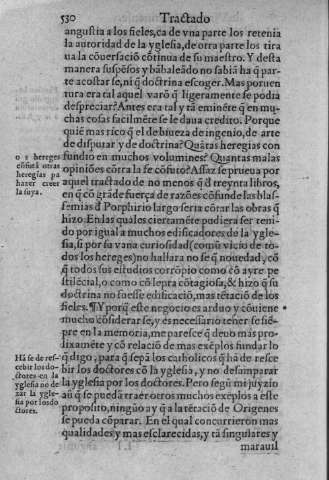 530 Tractado
angustia a los fieles, ca de vna parte los retenia
la autoridad de la yglesia, de otra parte los tira
ua la cõuersaciõ cõtinua de su maestro. Y desta
manera suspẽsos y bãbaleãdo no sabiã ha q̃ par-
te acostar se, ni q̃ doctrina escoger. Mas por uen
tura era tal aquel varõ q̃ ligeramente se podia
despreciar? Antes era tal y tã eminẽte q̃ en mu-
chas cosas facilmẽte se le daua credito. Porque
quiẽ mas rico q̃ el de biueza de ingenio, de arte
de disputar y de doctrina? Quãtas heregias con
fundio en muchos volumines? Quantas malas
opiniões cõtra la fe cõfuto? Assaz se prueua por
aquel tractado de no menos q̃ d̃ treynta libros,
en q̃ cõ grãde fuerça de razões cõfunde las blas-
femias d̃ Porphirio. largo seria cõtar las obras q̃
hizo. En las quales ciertamẽte pudiera ser teni-
do por igual a muchos edificadores de la ygle-
sia, si por su vana curiosidad (comũ vicio de to-
dos los hereges) no hallara no se q̃ nouedad, y cõ
q̃ todos sus estudios corrõpio como cõ ayre pe
stilẽcial, o como cõ lepra cõtagiosa, & hizo q̃ su
doctrina no fuesse edificaciõ, mas tẽtaciõ de los
fieles. ¶ Y porq̃ este negocio es arduo y cõuiene
mucho cõsiderar se, y es necessario tener se siẽ-
pre en la memoria, me paresce q̃ deuo mas pro-
lixamẽte y cõ relaciõ de mas exẽplos fundar lo
q̃ digo, para q̃ sepã los catholicos q̃ hã de resce
bir los doctores cõ la yglesia, y no desamparar
la yglesia por los doctores. Pero segũ mi juyzio
aũ q̃ se puedã traer otros muchos exẽplos a este
proposito, ningũo ay q̃ a la tẽtaciõ de Origenes
se pueda cõparar. En el qual concurrieron mas
qualidades y mas esclarecidas, y tã singulares y
marauil
o s hereges
cõfutã otras
heregias pa
hazer creer
la suya.
Hã se de res-
cebir los do-
ctores cn la
yglesia no de
xar la ygle-
sia por los do
ctores.